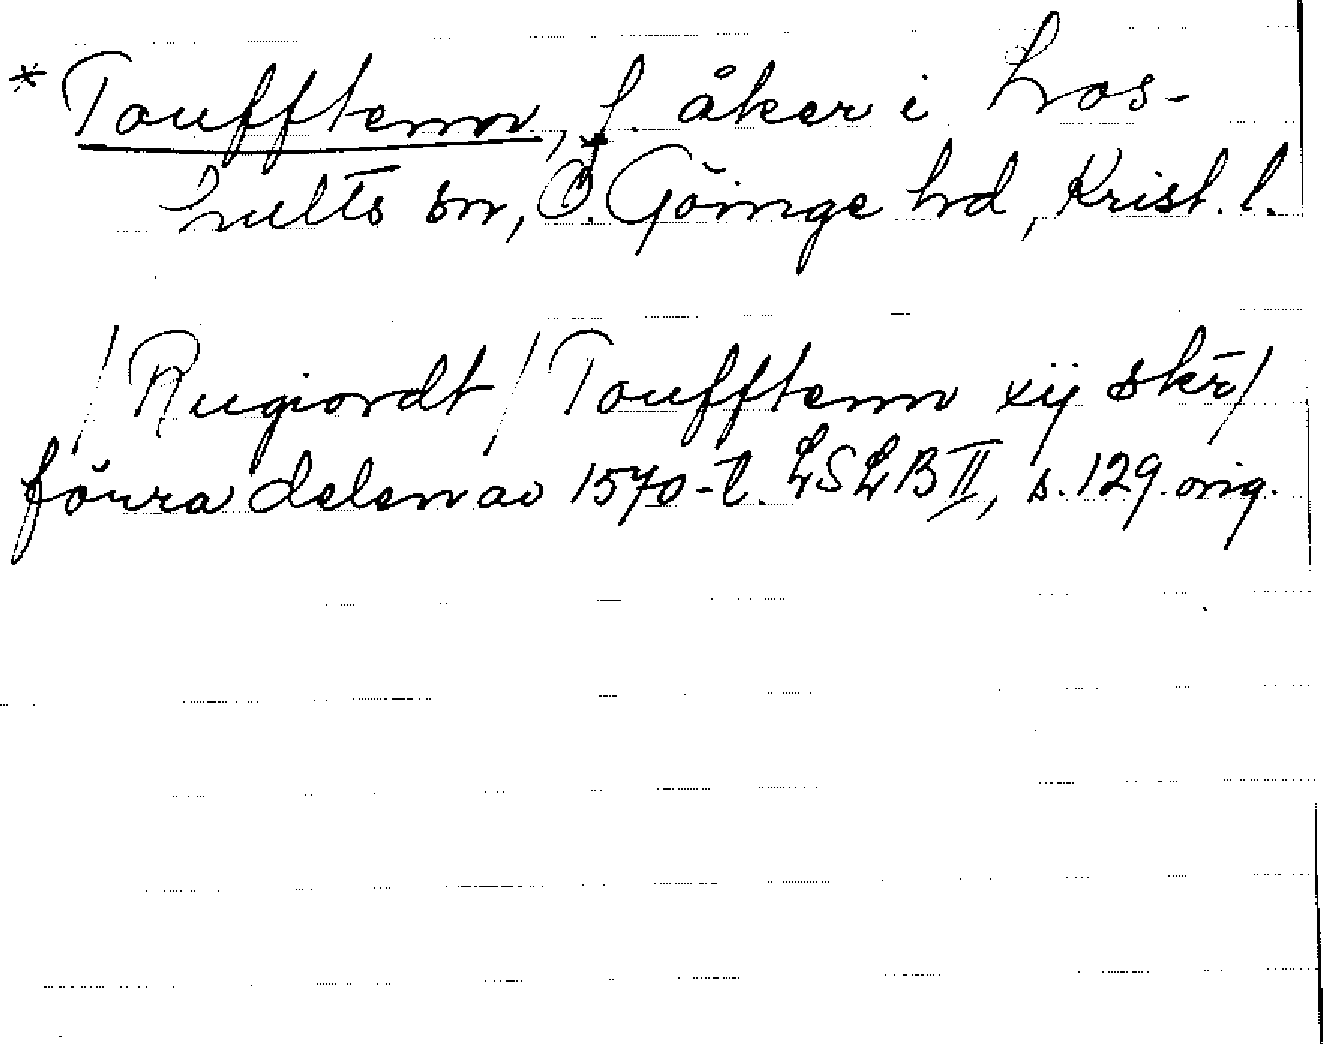 * Toufftenn, f. åker i Los-
hults sn, Ö. Göinge hd, Krist. l.
/ Rugiordt / Toufftenn xij skr/
förra delen av 1570-t. LSLB II, s. 129 orig.